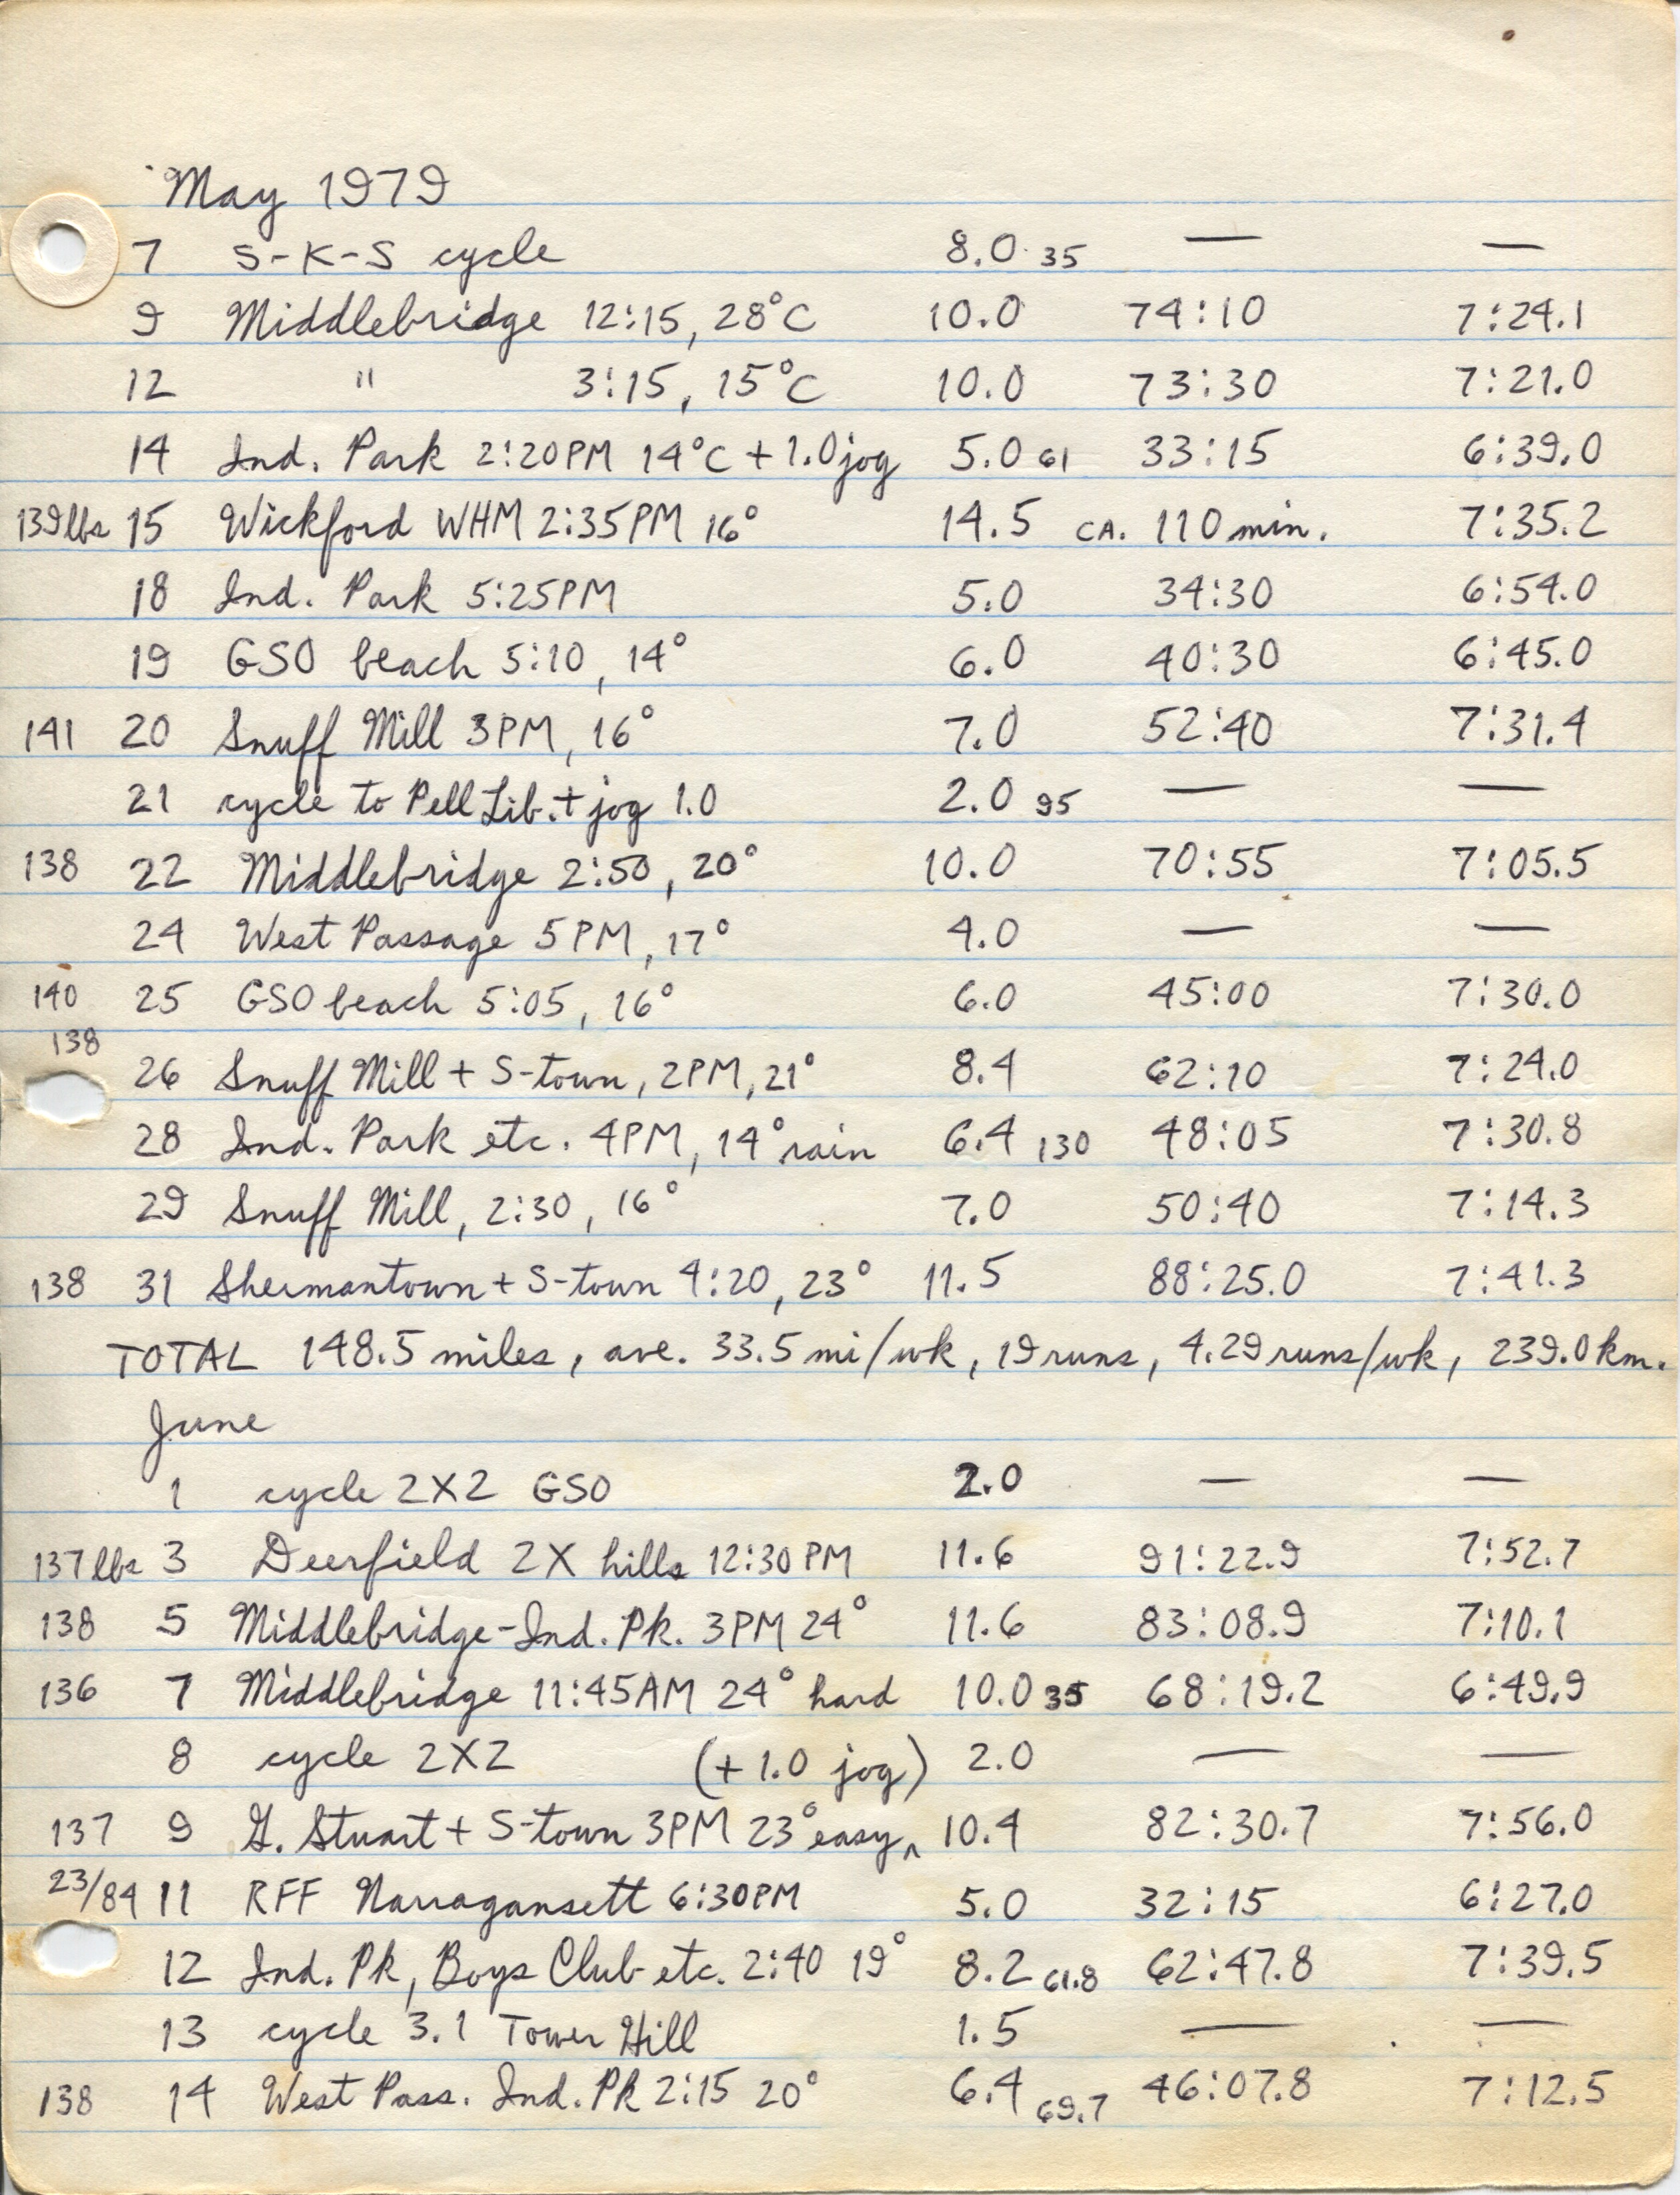 May 1979
7 S-K-S cycle 8.0 35 — —
9 Middlebridge 12:15, 28°C 10.0 74:10 7:24.1
12 " 3:15, 15°C 10.0 73:30 7:21.0
14 Ind. Park 2:20PM 14°C + 1.0 jog 5.0 61 33:15 6:39.0
139 lbs 15 Wickford WHM 2:35PM 16° 14.5 CA. 110 min. 7:35.2
18 Ind. Park 5:25PM 5.0 34:30 6:54.0
19 GSO beach 5:10, 14° 6.0 40:30 6:45.0
141 20 Snuff Mill 3PM, 16° 7.0 52:40 7:31.4
21 cycle to Pell Lib. + jog 1.0 2.0 95 — —
138 22 Middlebridge 2:50, 20° 10.0 70:55 7:05.5
24 West Passage 5PM, 17° 4.0 — —
140 25 GSO beach 5:05, 16° 6.0 45:00 7:30.0
138
26 Snuff Mill + S-town, 2PM, 21° 8.4 62:10 7:24.0
28 Ind. Park etc. 4PM, 14° rain 6.4 130 48:05 7:30.8
29 Snuff Mill, 2:30, 16° 7.0 50:40 7:14.3
138 31 Shermantown + S-town 4:20, 23° 11.5 88:25.0 7:41.3
TOTAL 148.5 miles, ave. 33.5 mi/wk, 19 runs, 4.29 runs/wk, 239.0 km.
June
1 cycle 2X2 GSO 2.0 — —
137 lbs 3 Deerfield 2X hills 12:30 PM 11.6 91:22.9 7:52.7
138 5 Middlebridge-Ind. Pk. 3PM 24° 11.6 83:08.9 7:10.1
136 7 Middlebridge 11:45AM 24° hard 10.0 35 68:19.2 6:49.9
8 cycle 2X2 (+ 1.0 jog) 2.0 — —
137 9 G. Stuart + S-town 3PM 23° easy 10.4 82:30.7 7:56.0
23/84 11 RFF Narragansett 6:30PM 5.0 32:15 6:27.0
12 Ind. Pk, Boys Club etc. 2:40 19° 8.2 61.8 62:47.8 7:39.5
13 cycle 3.1 Tower Hill 1.5 — —
138 14 West Pass. Ind. Pk 2:15 20° 6.4 69.7 46:07.8 7:12.5